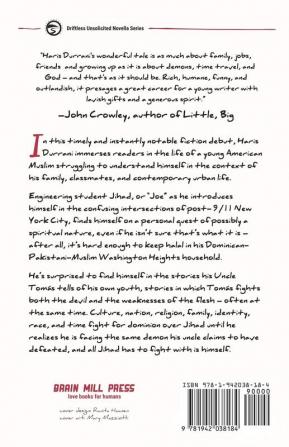 Driftless Unsolicited Novella Series
"Haris Durrani's wonderful tale is as much about family, jobs,
friends and growing up as it is about demons, time travel, and
God — and that's as it should be. Rich, humane, funny, and
outlandish, it presages a great career for a young writer with
lavish gifts and a generous spirit."
—John Crowley, author of Little, Big
In this timely and instantly notable fiction debut, Haris
Durrani immerses readers in the life of a young American
Muslim struggling to understand himself in the context of
his family, classmates, and contemporary urban life.
Engineering student Jihad, or "Joe" as he introduces
himself in the confusing intersections of post-9/11 New
York City, finds himself on a personal quest of possibly a
spiritual nature, even if he isn't sure that's what it is —
after all, it's hard enough to keep halal in his Dominican-
Pakistani-Muslim Washington Heights household.
He's surprised to find himself in the stories his Uncle
Tomás tells of his own youth, stories in which Tomás fights
both the devil and the weaknesses of the flesh — often at
the same time. Culture, nation, religion, family, identity,
race, and time fight for dominion over Jihad until he
realizes he is facing the same demon his uncle claims to have
defeated, and all Jihad has to fight with is himself.
BRAIN MILL PRESS
love books for humans
cover design Ranita Haanen
cover art Mary
ISBN 978-1-942038-18-4
90000
9 781942 038184